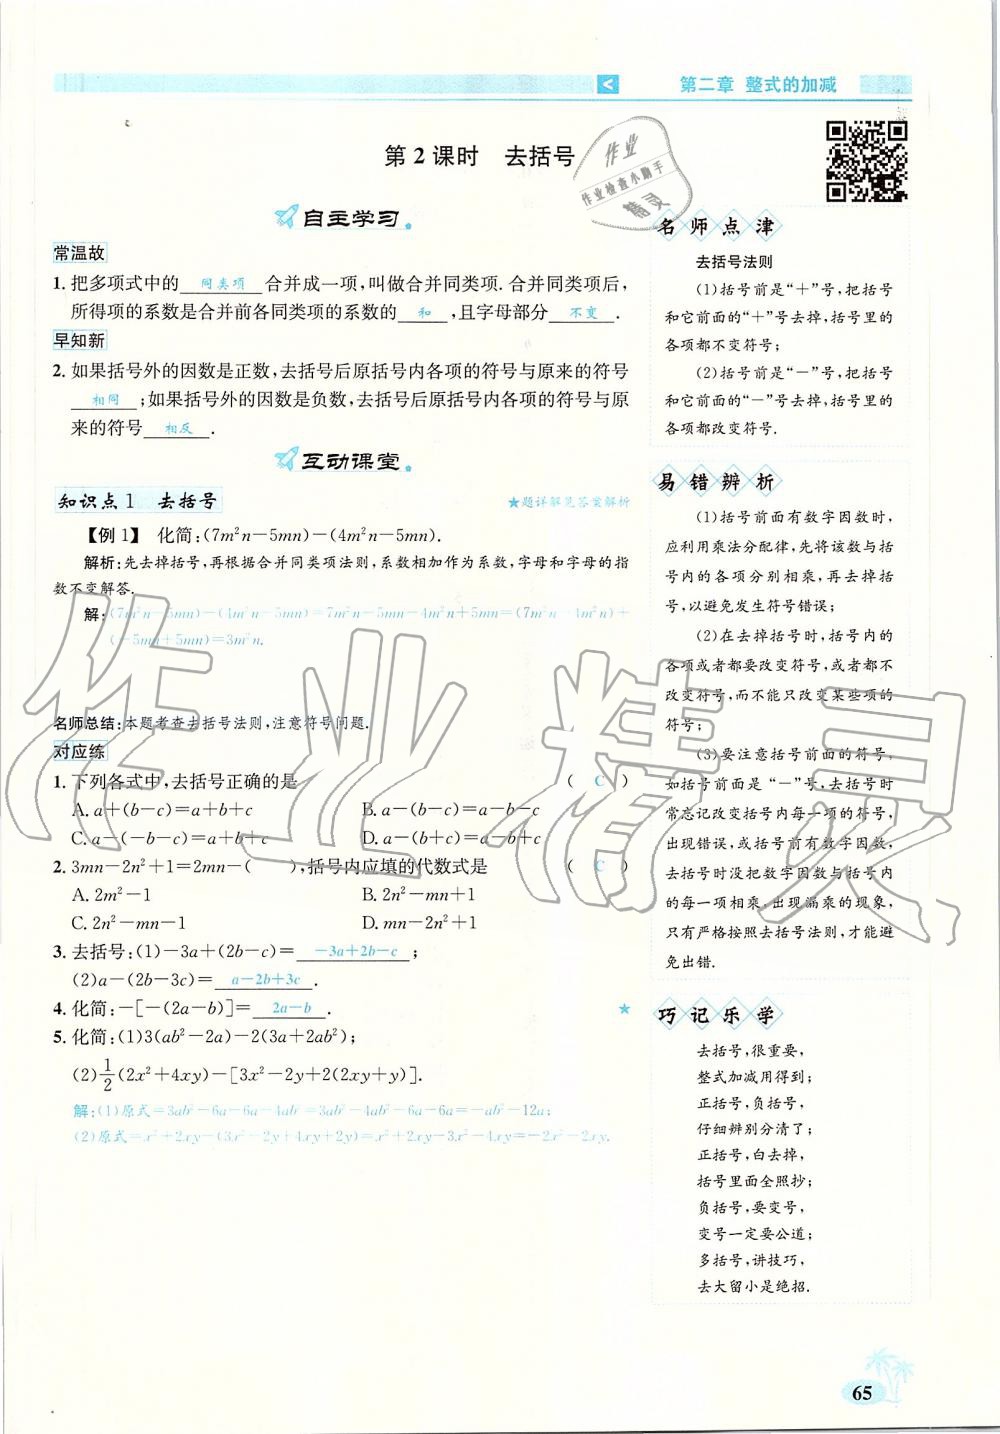 第二章 整式的加减
第 2 课时 去括号
作业
作业检查小助手
精灵
自主学习
常温故
1. 把多项式中的 同类项 合并成一项,叫做合并同类项. 合并同类项后,
所得项的系数是合并前各同类项的系数的 和 ,且字母部分 不变 .
早知新
2. 如果括号外的因数是正数,去括号后原括号内各项的符号与原来的符号
相同 ;如果括号外的因数是负数,去括号后原括号内各项的符号与原
来的符号 相反 .
互动课堂
知识点 1 去括号
★题详解见答案解析
【例 1】 化简:(7m²n-5mn)-(4m²n-5mn).
解析:先去掉括号,再根据合并同类项法则,系数相加作为系数,字母和字母的指
数不变解答.
解:(7m²n-5mn)-(4m²n-5mn)=7m²n-5mn-4m²n+5mn=(7m²n-4m²n)+
(-5mn+5mn)=3m²n.
名师总结:本题考查去括号法则,注意符号问题.
对应练
1. 下列各式中,去括号正确的是 ( C )
A. a+(b-c)=a+b+c B. a-(b-c)=a-b-c
C. a-(-b-c)=a+b+c D. a-(b+c)=a-b+c
2. 3mn-2n²+1=2mn-( ),括号内应填的代数式是 ( C )
A. 2m²-1 B. 2n²-mn+1
C. 2n²-mn-1 D. mn-2n²+1
3. 去括号:(1)-3a+(2b-c)= -3a+2b-c ;
(2)a-(2b-3c)= a-2b+3c .
4. 化简:-[-(2a-b)]= 2a-b . ★
5. 化简:(1)3(ab²-2a)-2(3a+2ab²);
(2)1/2(2x²+4xy)-[3x²-2y+2(2xy+y)].
解:(1)原式=3ab²-6a-6a-4ab²=3ab²-4ab²-6a-6a=-ab²-12a;
(2)原式=x²+2xy-(3x²-2y+4xy+2y)=x²+2xy-3x²-4xy=-2x²-2xy.
名师点津
去括号法则
(1)括号前是“+”号,把括号
和它前面的“+”号去掉,括号里的
各项都不变符号;
(2)括号前是“-”号,把括号
和它前面的“-”号去掉,括号里的
各项都改变符号.
易错辨析
(1)括号前面有数字因数时,
应利用乘法分配律,先将该数与括
号内的各项分别相乘,再去掉括
号,以避免发生符号错误;
(2)在去掉括号时,括号内的
各项或者都要改变符号,或者都不
改变符号,而不能只改变某些项的
符号;
(3)要注意括号前面的符号,
如括号前面是“-”号,去括号时
常忘记改变括号内每一项的符号,
出现错误,或括号前有数字因数,
去括号时没把数字因数与括号内
的每一项相乘,出现漏乘的现象,
只有严格按照去括号法则,才能避
免出错.
巧记乐学
去括号,很重要,
整式加减用得到;
正括号,负括号,
仔细辨别分清了;
正括号,白去掉,
括号里面全照抄;
负括号,要变号,
变号一定要公道;
多括号,讲技巧,
去大留小是绝招.
作业精灵
65